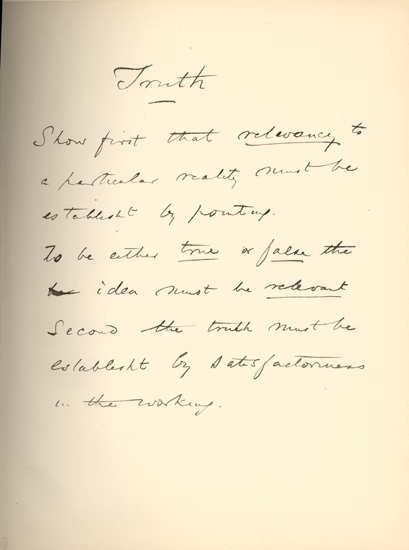 Truth
Show first that relevancy to
a particular reality must be
establisht by pointing.
To be either true or false the
idea must be relevant
Second the truth must be
establisht by satisfactoriness
in the working.